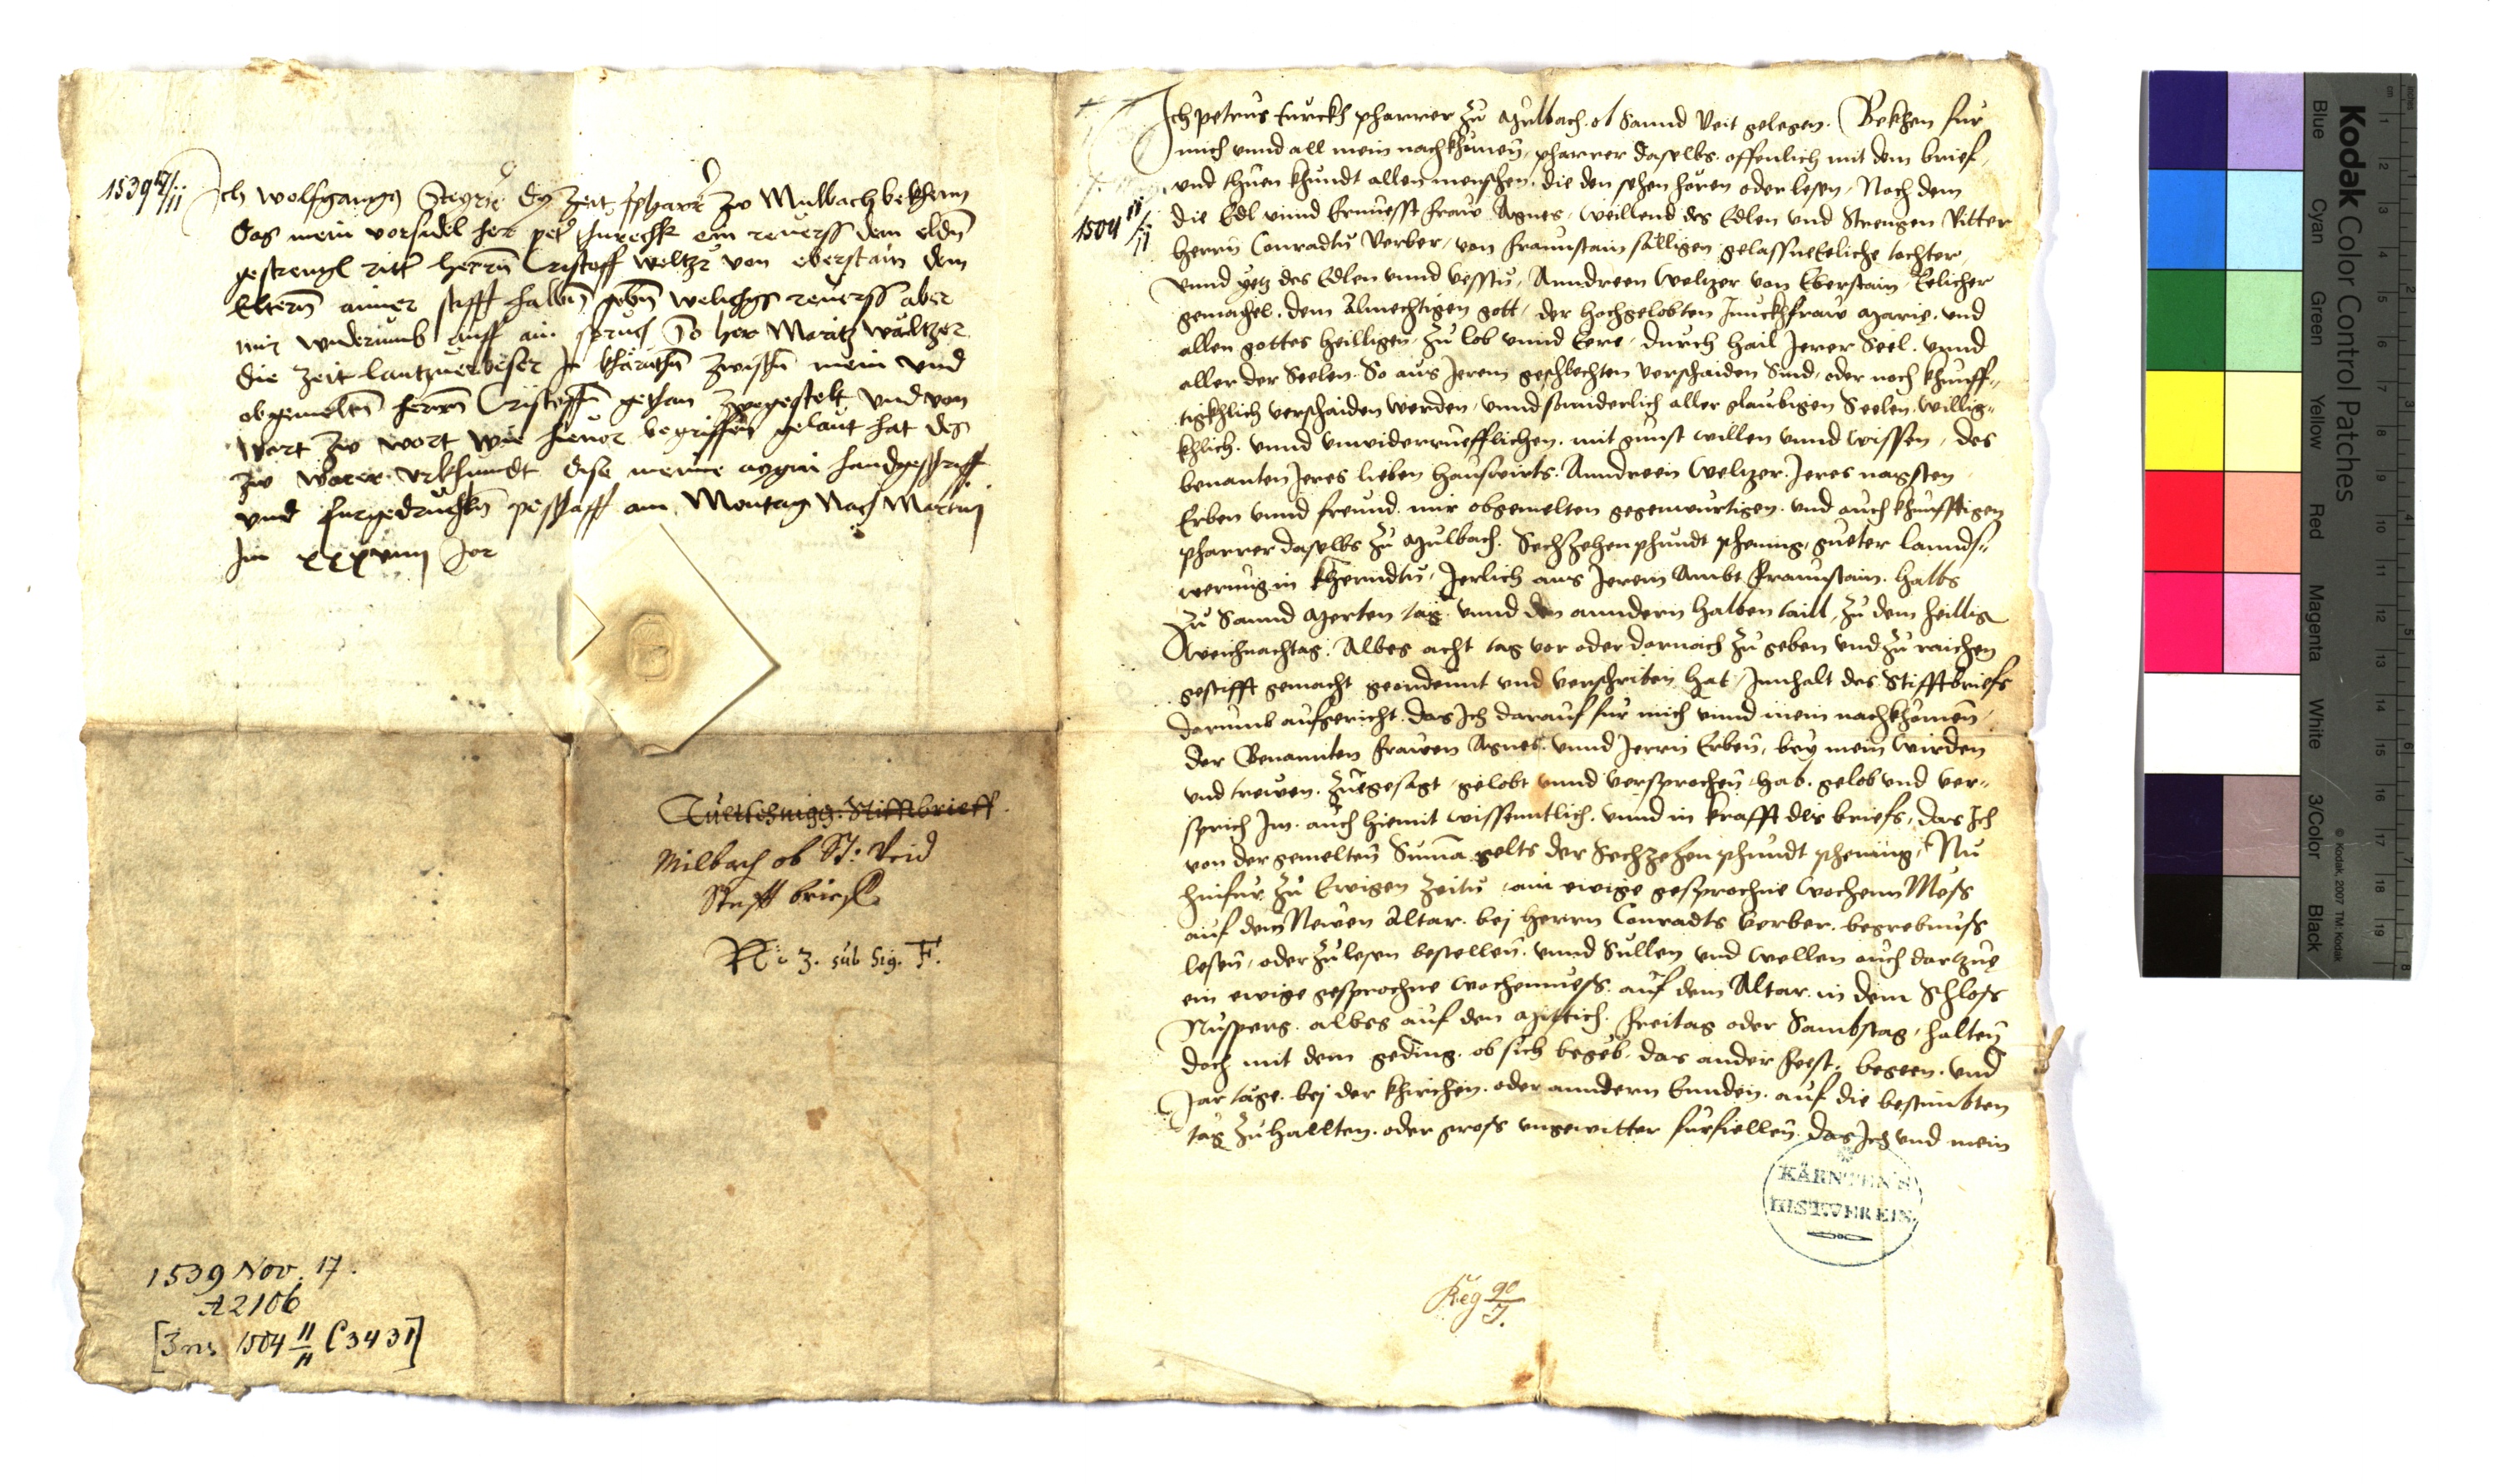 1539 17/11
Ich wolfgangg Steyrer dy Zeit pharrer zw Mulbach bekhenn
Das mein vorfadel her peter thurechk ein reuerss dem eldñ
gestrengl ritter herrñ Cristoff weltzr von eberstain dem
Elterñ ainer stifft halbñ gebñ welichgs reuerss aber
mir widerumb auff ain spruch So her Moritz waltzer
die Zeit lantzuerbeser In khärnthñ zwischñ mein vnd
obgemeltñ herrñ Cristoffñ gethan zwgestelt vnd von
wort zw wort wie hieuor begriffen gelaut hat des
zw warer vrkhundt dise meine aygin handgschrifft
vnd furgedruchktñ petschafft am Montag Nach Martini
Im xxxviiij Jor
Stifftbrieff
Milbach ob St: Veid
Stifft brieff
No 3. sub Sig. F.
1539 Nov. 17.
A2106
[Ins 1504 11/11 C3431]
1504 11/11
Ich petrus turckh pharrer zu Mulbach ob Sannd Veit gelegen. Bekhen fur
mich vnnd all mein nachkhumen, pharrer daselbs offenlich mit dem brief,
vnd thuen khundt allen menschen, die den sehen horen oder lesen, Nach dem
die Edl vnnd Ernuesst fraw Agnes, weillend des Edlen vnd Strengen Ritter
herrn Conradtn Verber, von fraunstain sälligen gelassne Eeliche tochter,
vnnd yetz des Edlen vnnd vesstn, Anndreen Weltzer von Eberstain, Eelicher
gemachel. dem Almechtigen gott, der hochgelobten Junckhfraw Marie, vnd
allen gottes heilligen, zu lob vnnd Eere, durch hail Jerer Seel. vnnd
aller der Seelen. So aus Jerem geschlechten verschaiden Sind, oder noch khunff-
tigkhlich verschaiden werden, vnnd sonnderlich aller glaubigen Seelen, willig-
khlich vnnd vnwiderruefflichen, mit gunst willen vnnd wissen, des
benanten Jeres lieben hauswirts. Anndreen Weltzer. Jeres nagsten
Erben vnnd freund. mir obgemelten gegenwurtigen. vnd auch khunfftigen
pharrer daselbs zu Mulbach. Sechzehen phundt phening, gueter lannds-
werung in kherndtn, Jerlich aus Jerem Ambt fraunstain. halbs
zu Sannd Merten tag. vnnd den anndern halben taill, zu dem heillig
Weichnachtag. Albeg acht tag vor oder darnach zu geben vnd zu raichen
gestifft gemacht geordennt vnd verschriben hat, Innhalt des Stifftbriefs
darumb aufgericht. das Ich darauf fur mich vnnd mein nachkhomen,
der Benannten frawen Agnes vnnd Jerrn Erben, bey mein wirden
vnd trewen. zuegesagt, gelobt vnnd versprochen hab. gelob vnd ver-
sprich Im. auch hiemit wissenntlich. vnnd in krafft des briefs, das Ich
von der gemelten Summa gelts der Sechzehen phundt phening, Nu
hinfur zu Ewigen Zeitn, ain ewige gesprochne wochenn Mess
auf dem Newen Altar. bej herrn Conradts Verber. begrebnuss
lesen, oder zulesen bestellen. vnnd Sullen vnd wellen auch dartzue
ein ewige gesprochne wochenmess. auf dem Altar in dem Schloss
Nusperg. albeg auf den Mittich. freitag oder Sambstag, halten
doch mit dem geding. ob sich begeb. das ander fesst, begeen. vnd
Jartage. bej der khirchen. oder anndern Ennden. auf die bestimbten
tag zuhallten. oder gross vngewitter furfiellen. das Ich vnd mein
KÄRNTEN'S
HIST. VEREIN.
Reg 90/J.
Kodak Color Control Patches
© Kodak, 2007 TM: Kodak
Blue Cyan Green Yellow Red Magenta White 3/Color Black
cm 1 2 3 4 5 6 7 8 9 10 11 12 13 14 15 16 17 18 19
inches 1 2 3 4 5 6 7 8